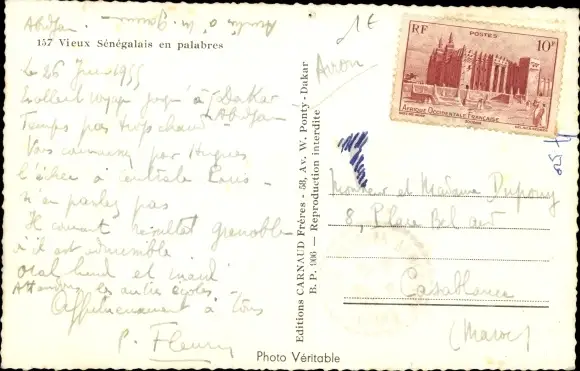 Abdjan
157 Vieux Sénégalais en palabres
Le 26 Juin 1955
Excellent voyage jusqu'à Dakar
Abdjan
Temps pas trop chaud
Vous connaissez par Hugues
l'échec à Centrale Paris -
n'en parlez pas
Il connait résultat Grenoble
où il est admissible
oral lundi et mardi
Attendons les autres écoles -
Affectueusement à tous
P. Fleury
Editions CARNAUD Frères - 58, Av. W. Ponty-Dakar
B. P. 006 — Reproduction interdite
Photo Véritable
1€
Avion
RF
POSTES
10F
AFRIQUE OCCIDENTALE FRANÇAISE
Monsieur et Madame Dupouy
8, Place Bel air
Casablanca
(Maroc)